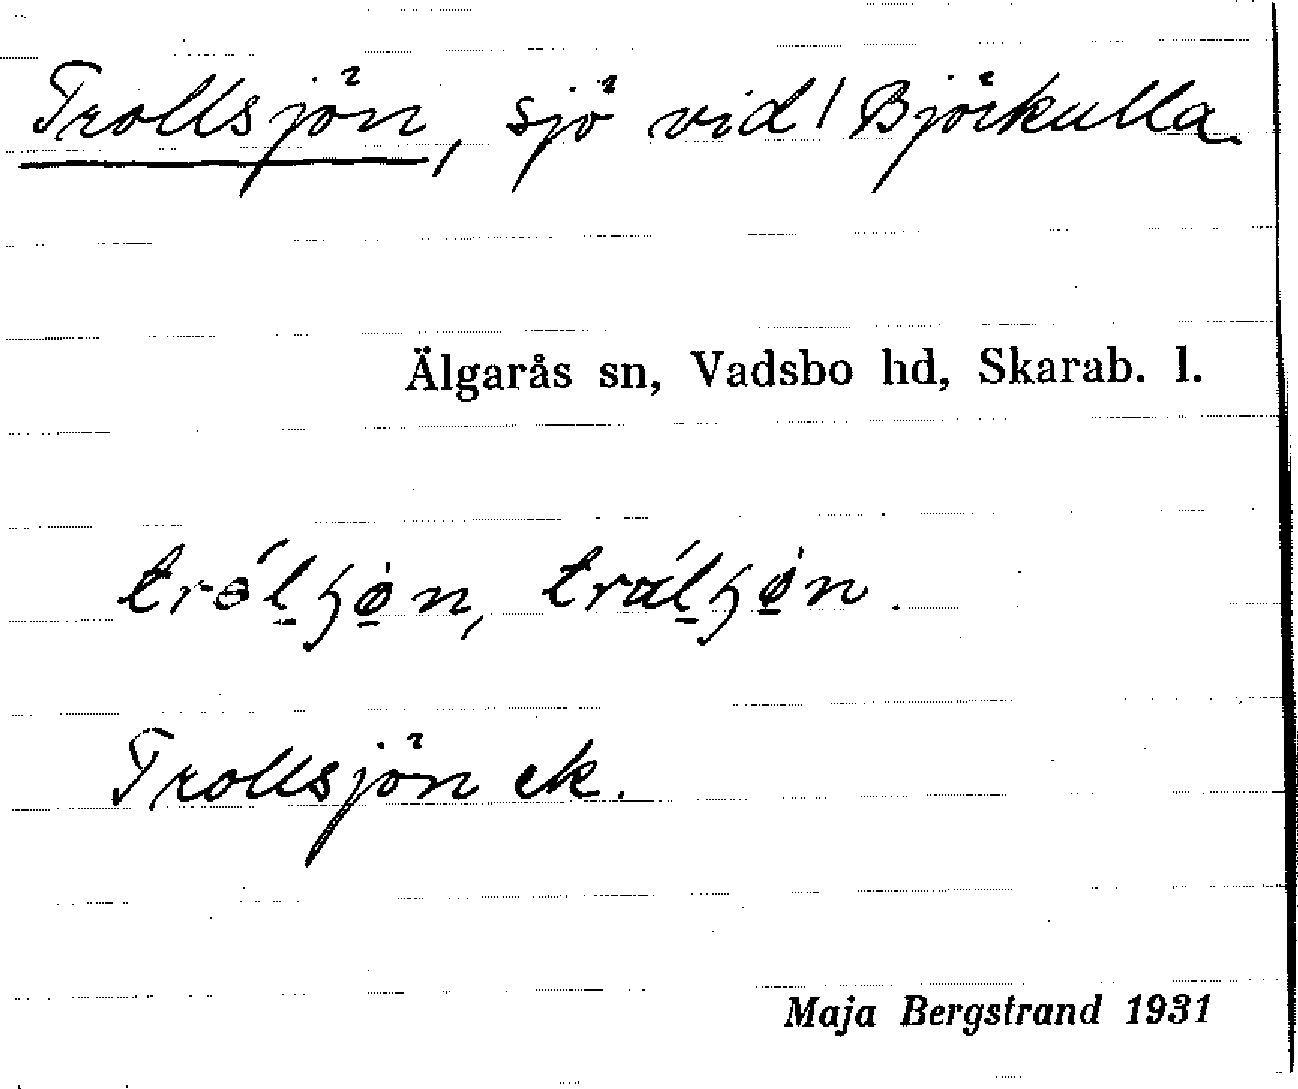 Trollsjön, sjö vid Björkulla
Älgarås sn, Vadsbo hd, Skarab. l.
Trollsjön ek.
Maja Bergstrand 1931